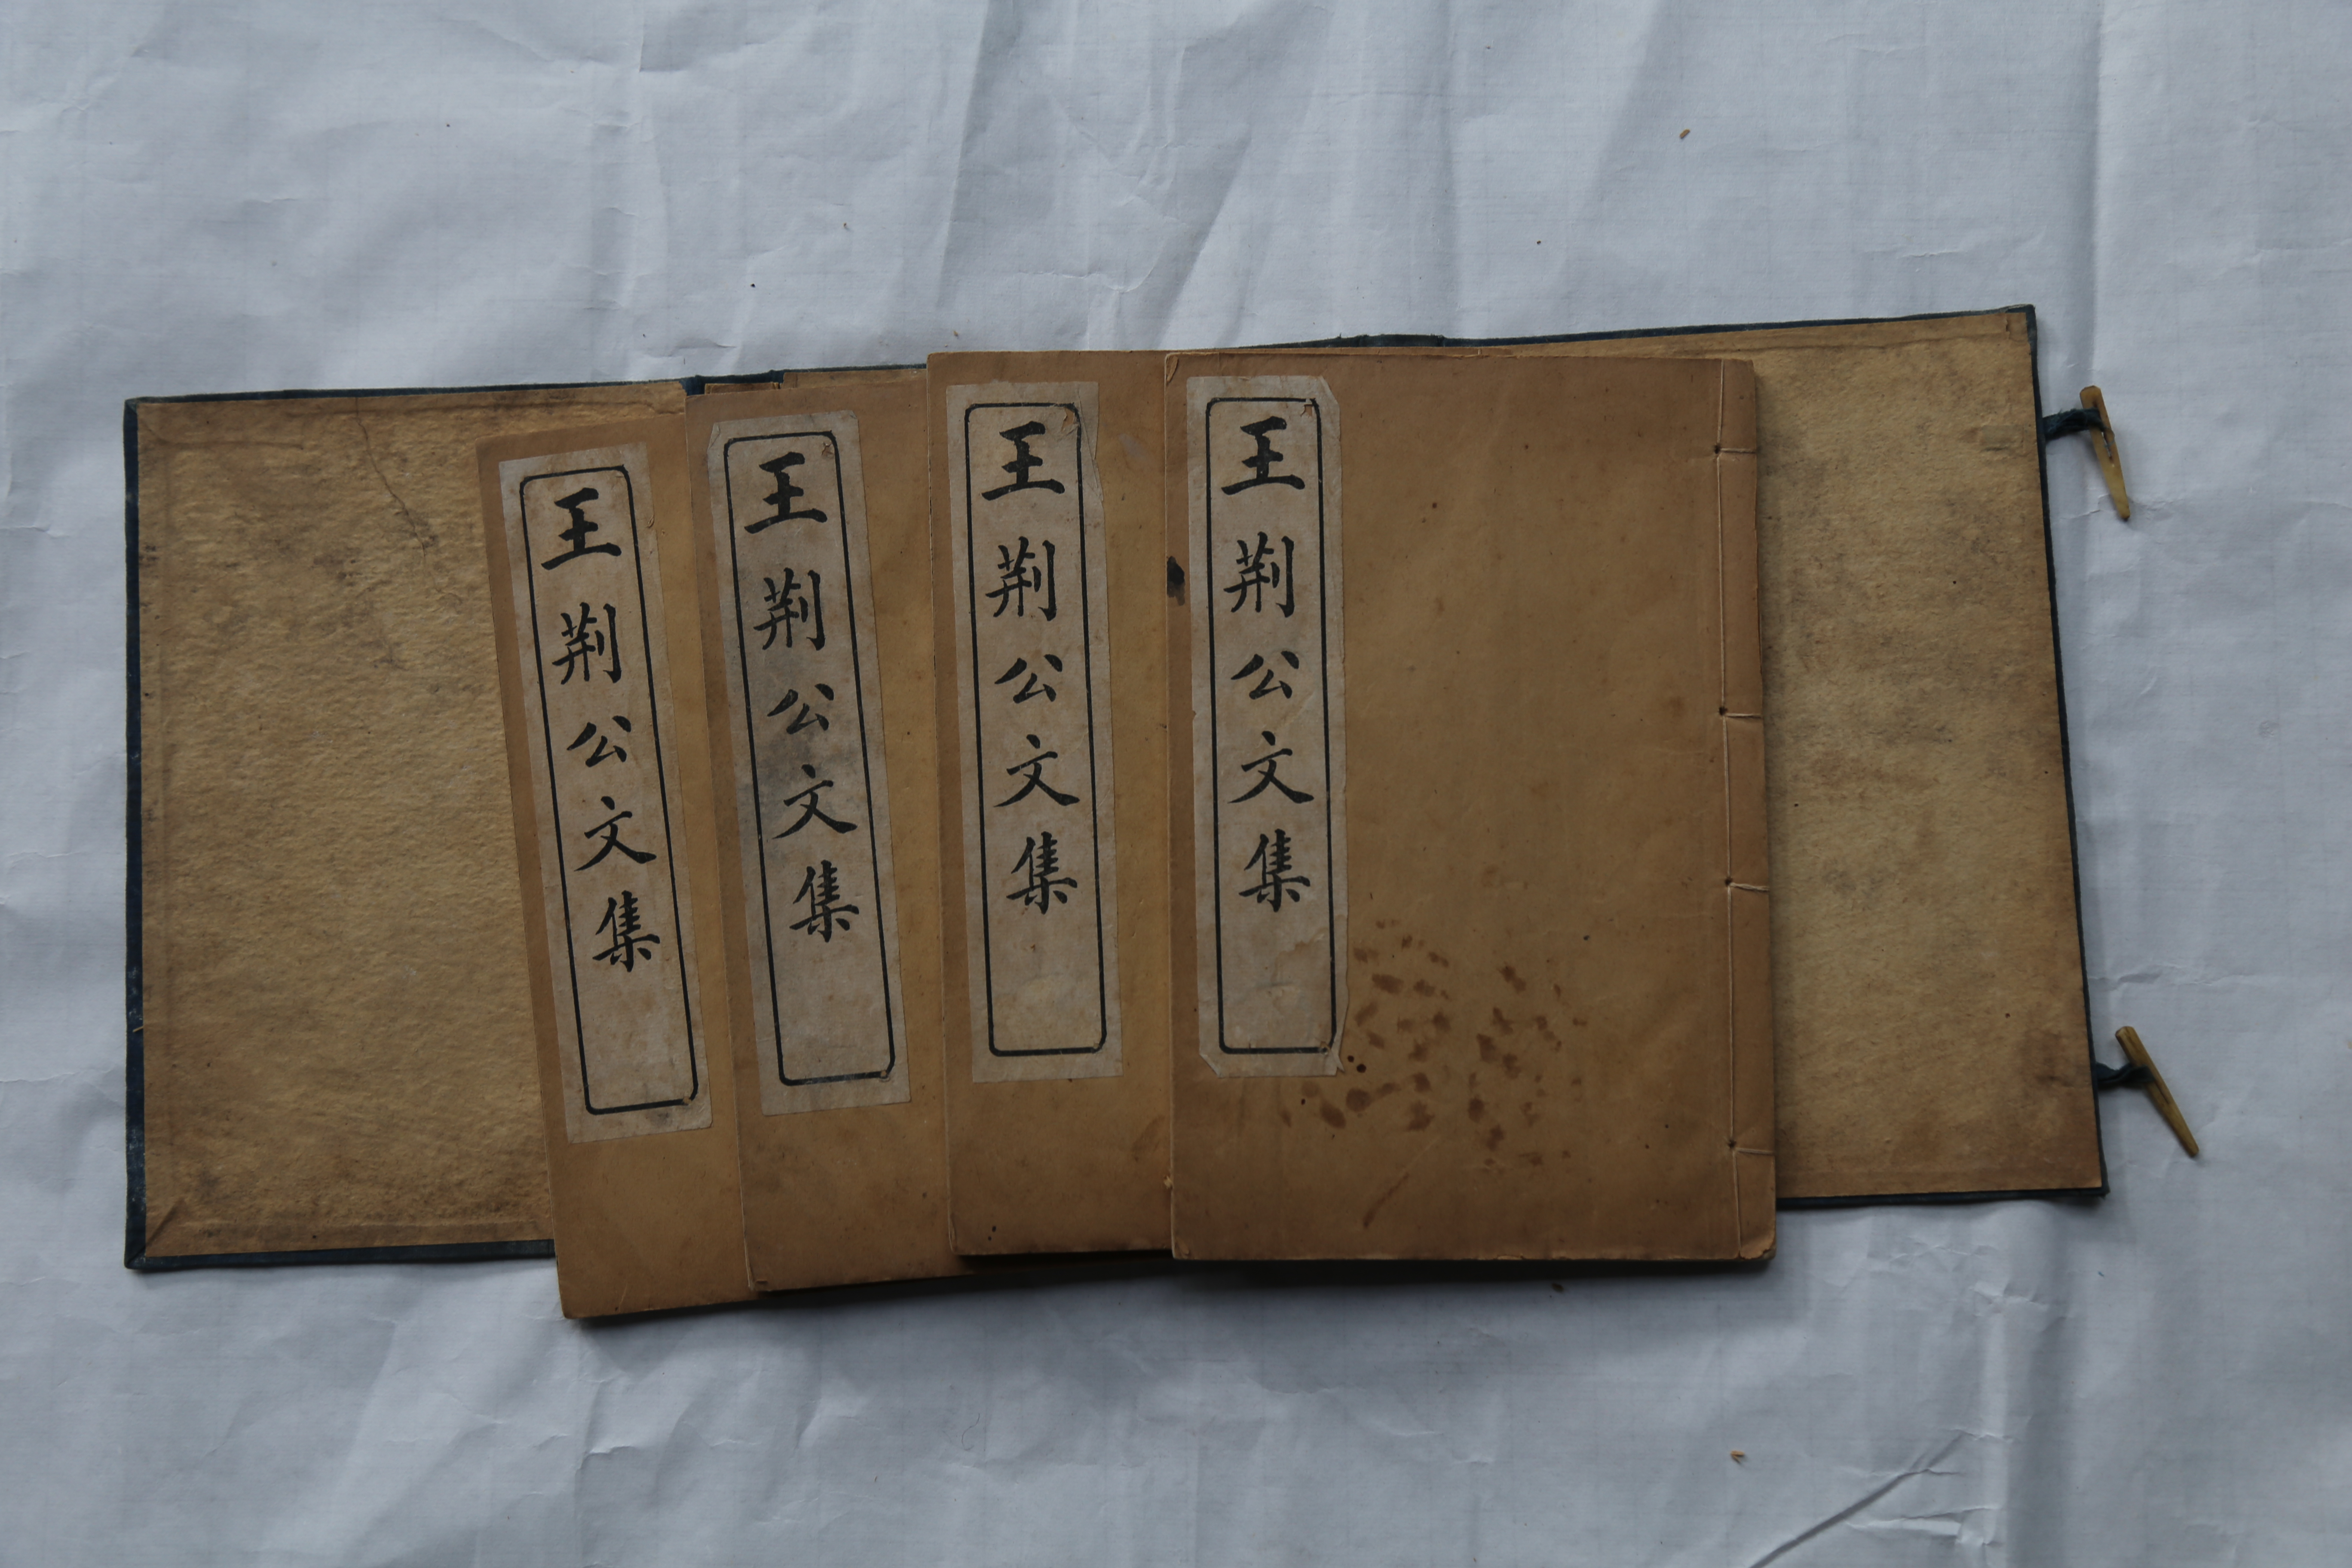 王荆公文集
王荆公文集
王荆公文集
王荆公文集